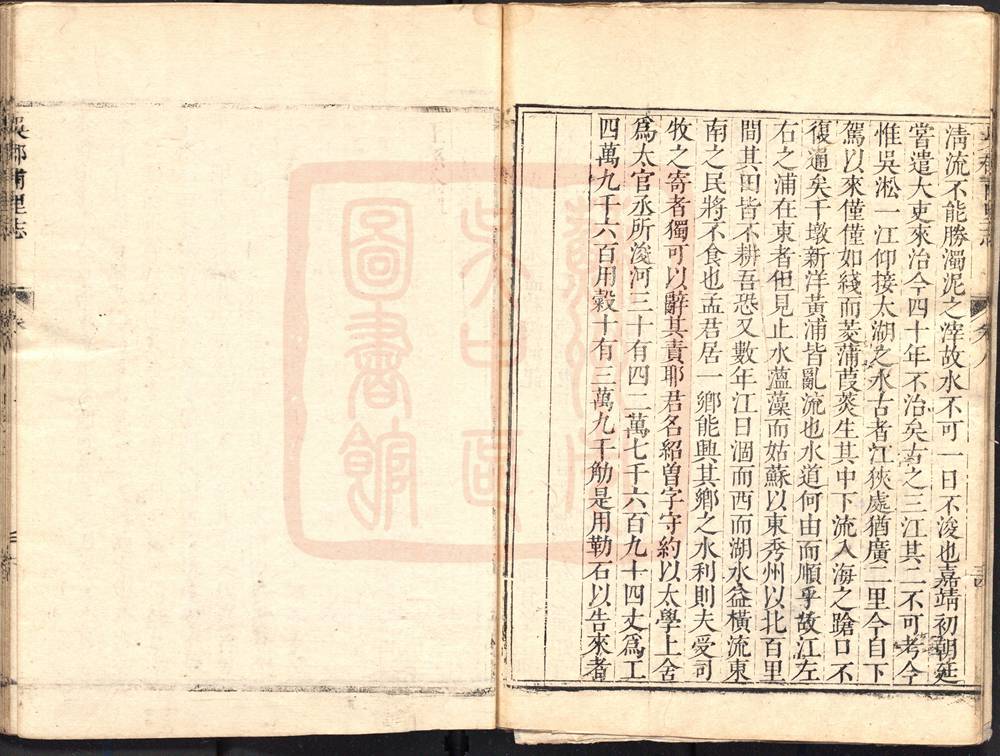 清流不能勝濁泥之滓故水不可一日不浚也嘉靖初朝廷
嘗遣大吏來治今四十年不治矣古之三江其二不可考今
惟吳淞一江仰接太湖之水古者江狹處猶廣二里今自下
駕以來僅僅如綫而菱蒲葭菼生其中下流入海之蹌口不
復通矣千墩新洋黃浦皆亂流也水道何由而順乎故江左
右之浦在東者但見止水薀藻而姑蘇以東秀州以北百里
間其田皆不耕吾恐又數年江日涸而西而湖水益橫流東
南之民將不食也孟君居一鄉能興其鄉之水利則夫受司
牧之寄者獨可以辭其責耶君名紹曽字守約以太學上舍
爲太官丞所浚河三十有四二萬七千六百九十四丈爲工
四萬九千六百用穀十有三萬九千觔是用勒石以告來者
卷八
吳郡甫里志
圖書館